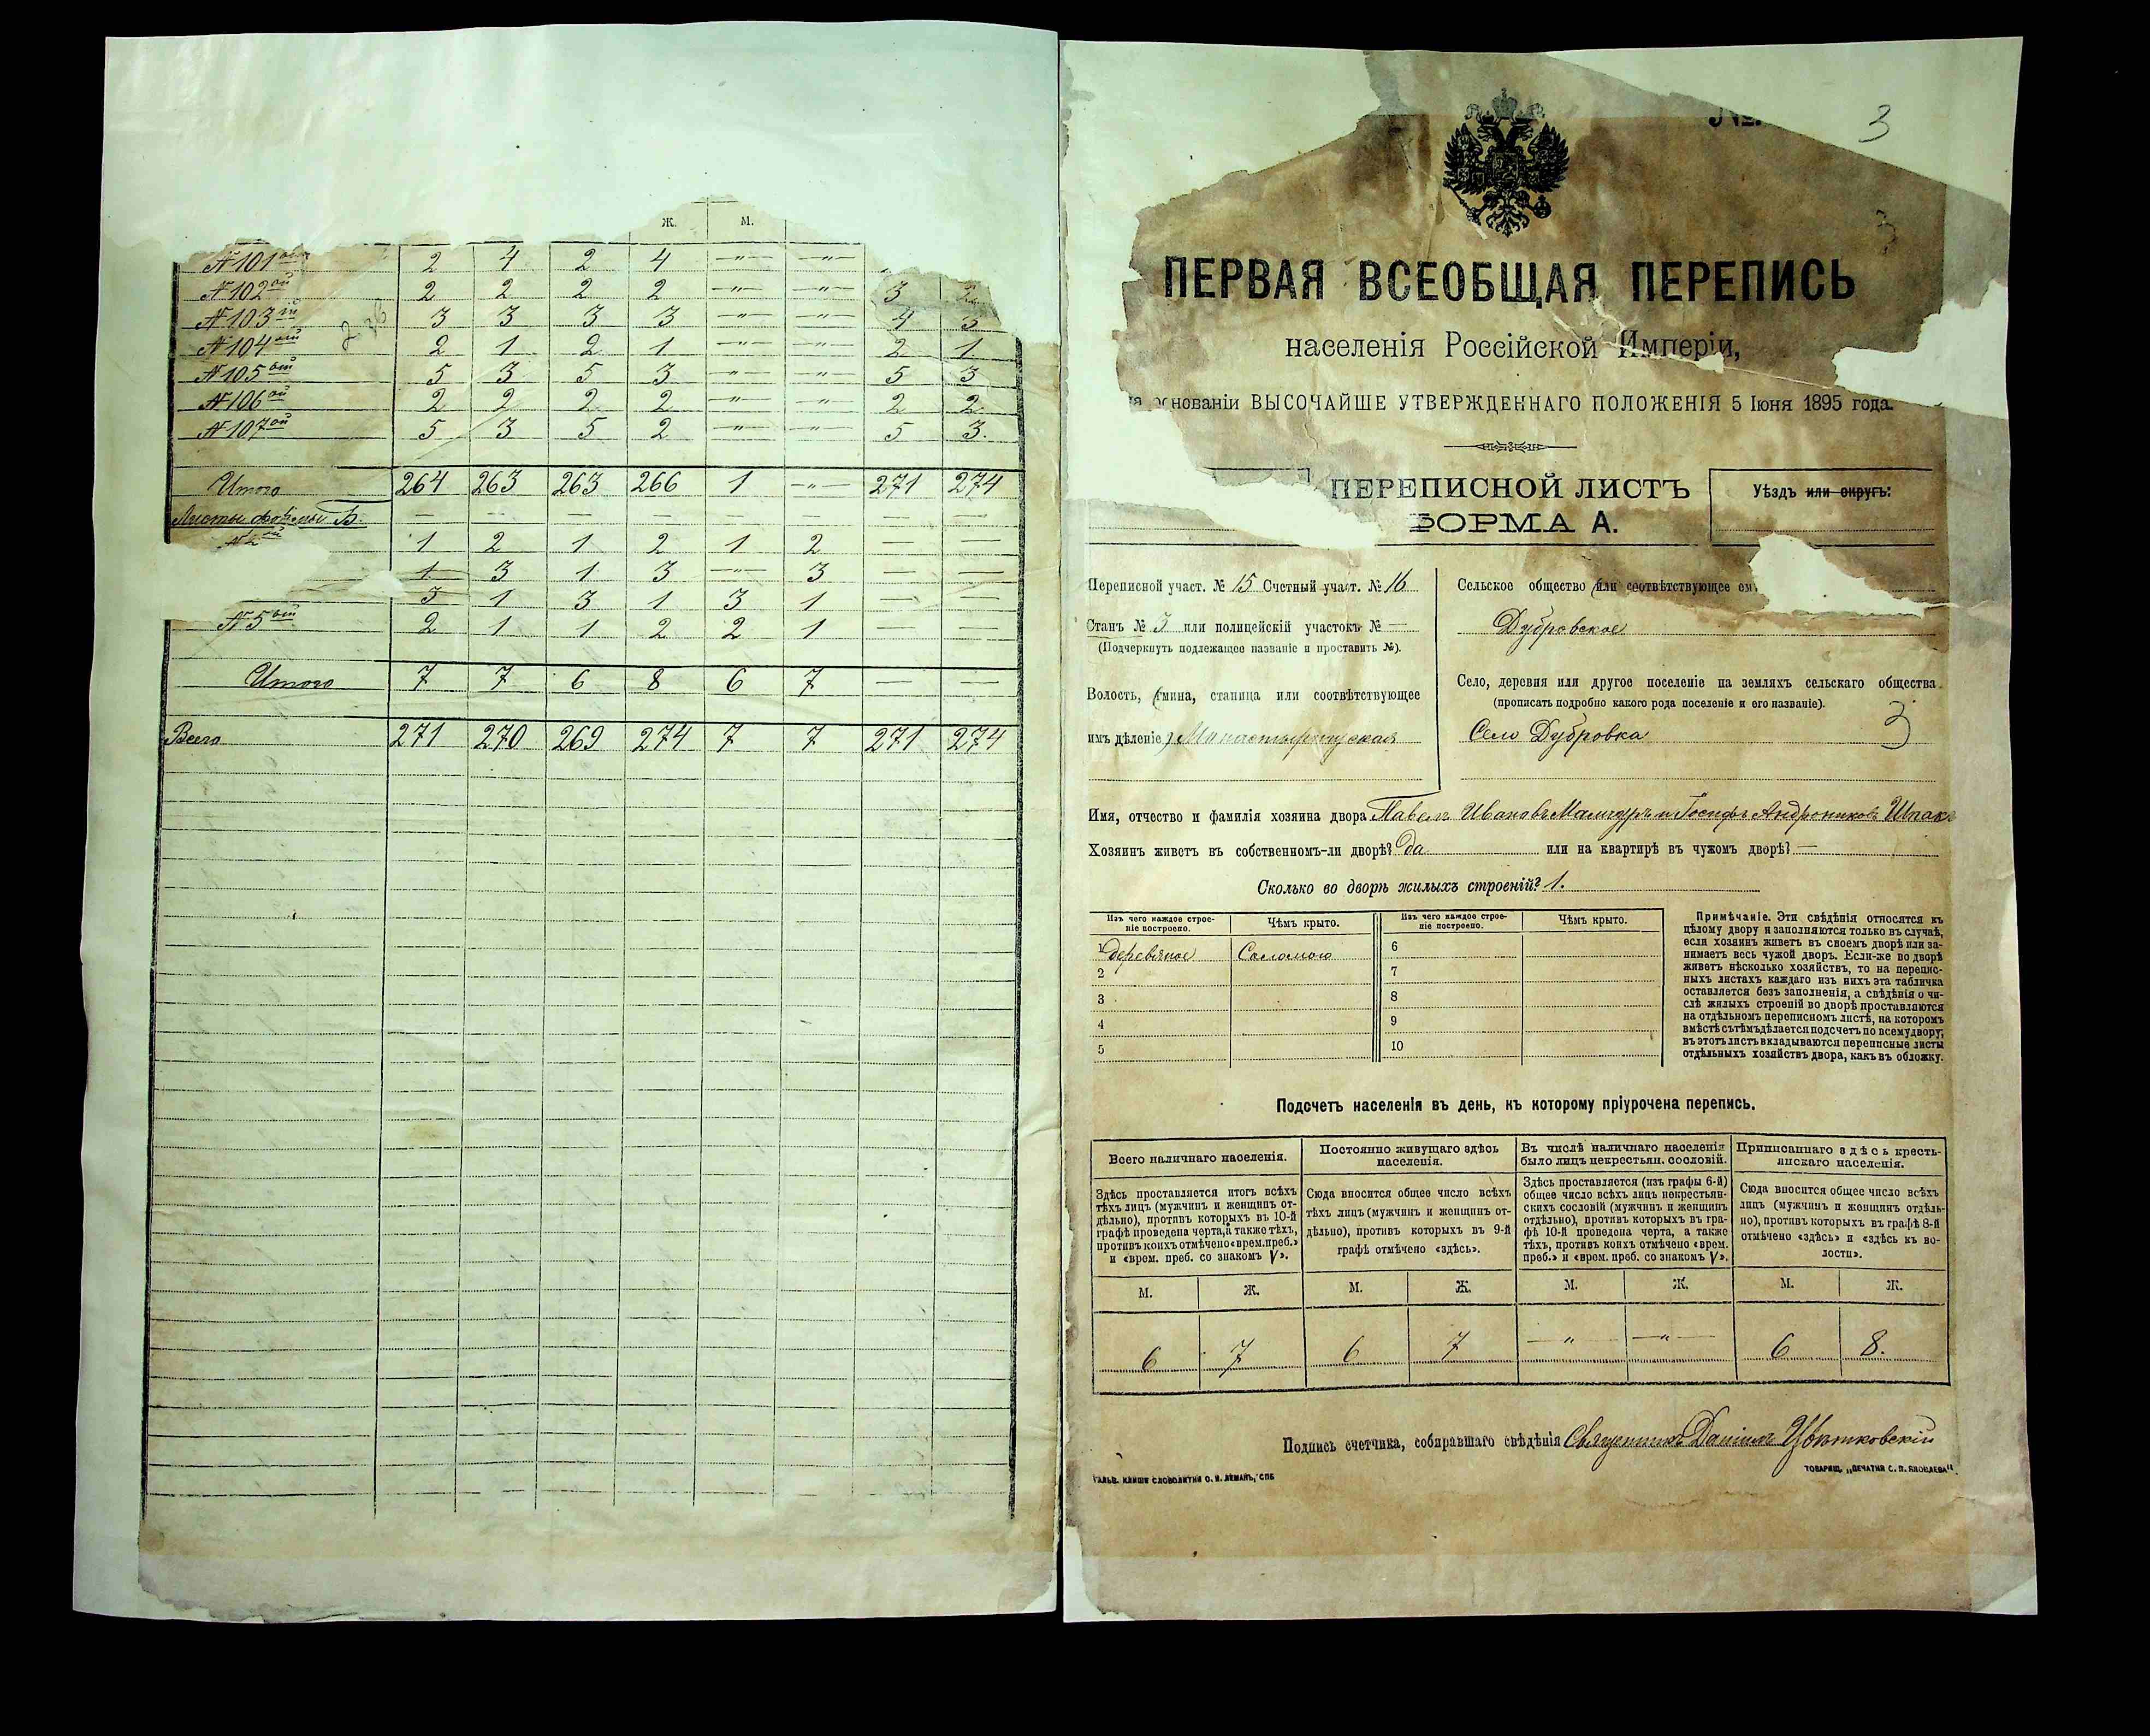 Ж. М.
№ 101ый 2 4 2 4 —"— —"—
№ 102ой 2 2 2 2 —"— —"— 3 2
№ 103ій 3 3 3 3 —"— —"— 4 3
№ 104ый 2 1 2 1 —"— —"— 2 1
№ 105ый 5 3 5 3 —"— —"— 5 3
№ 106ой 2 2 2 2 —"— —"— 2 2
№ 107ой 5 3 5 2 —"— —"— 5 3.
Итого 264 263 263 266 1 —"— 271 274
Листы формы Б. — — — — — — — —
1 2 1 2 1 2 — —
1 3 1 3 —"— 3 — —
3 1 3 1 3 1 — —
№ 5ый 2 1 1 2 2 1 — —
Итого 7 7 6 8 6 7 — —
Всего 271 270 269 274 7 7 271 274
№ 3
3
ПЕРВАЯ ВСЕОБЩАЯ ПЕРЕПИСЬ
населенія Россійской Имперіи,
на основаніи ВЫСОЧАЙШЕ УТВЕРЖДЕННАГО ПОЛОЖЕНІЯ 5 Іюня 1895 года.
ПЕРЕПИСНОЙ ЛИСТЪ
ФОРМА А.
Уѣздъ или округъ:
Переписной участ. № 15 Счетный участ. № 16
Станъ № 3 или полицейскій участокъ № —
(Подчеркнуть подлежащее названіе и проставить №).
Волость, гмина, станица или соотвѣтствующее
имъ дѣленіе)
Сельское общество (или соотвѣтствующее ему
Дубровское
Село, деревня или другое поселеніе на земляхъ сельскаго общества
(прописать подробно какого рода поселеніе и его названіе).
Село Дубровка 3
Имя, отчество и фамилія хозяина двора Павелъ Ивановъ и Іосифъ Андрониковъ Шпакъ
Хозяинъ живетъ въ собственномъ-ли дворѣ? да или на квартирѣ въ чужомъ дворѣ? —
Сколько во дворѣ жилыхъ строеній? 1.
Изъ чего каждое строе-
ніе построено.
Чѣмъ крыто.
Изъ чего каждое строе-
ніе построено.
Чѣмъ крыто.
1 деревяное Соломою 6
2 7
3 8
4 9
5 10
Примѣчаніе. Эти свѣдѣнія относятся къ
цѣлому двору и заполняются только въ случаѣ,
если хозяинъ живетъ въ своемъ дворѣ или за-
нимаетъ весь чужой дворъ. Если-же во дворѣ
живетъ нѣсколько хозяйствъ, то на перепис-
ныхъ листахъ каждаго изъ нихъ эта табличка
оставляется безъ заполненія, а свѣдѣнія о чи-
слѣ жилыхъ строеній во дворѣ проставляются
на отдѣльномъ переписномъ листѣ, на которомъ
вмѣстѣ съ тѣмъ дѣлается подсчетъ по всему двору;
въ этотъ листъ вкладываются переписные листы
отдѣльныхъ хозяйствъ двора, какъ въ обложку.
Подсчетъ населенія въ день, къ которому пріурочена перепись.
Всего наличнаго населенія.
Здѣсь проставляется итогъ всѣхъ
тѣхъ лицъ (мужчинъ и женщинъ от-
дѣльно), противъ которыхъ въ 10-й
графѣ проведена черта, а также тѣхъ,
противъ коихъ отмѣчено «врем. преб.»
и «врем. преб. со знакомъ V».
Постоянно живущаго здѣсь
населенія.
Сюда вносится общее число всѣхъ
тѣхъ лицъ (мужчинъ и женщинъ от-
дѣльно), противъ которыхъ въ 9-й
графѣ отмѣчено «здѣсь».
Въ числѣ наличнаго населенія
было лицъ некрестьян. сословій.
Здѣсь проставляется (изъ графы 6-й)
общее число всѣхъ лицъ некрестьян-
скихъ сословій (мужчинъ и женщинъ
отдѣльно), противъ которыхъ въ гра-
фѣ 10-й проведена черта, а также
тѣхъ, противъ коихъ отмѣчено «врем.
преб.» и «врем. преб. со знакомъ V».
Приписаннаго здѣсь кресть-
янскаго населенія.
Сюда вносится общее число всѣхъ
лицъ (мужчинъ и женщинъ отдѣль-
но), противъ которыхъ въ графѣ 8-й
отмѣчено «здѣсь» и «здѣсь къ во-
лости».
М. Ж. М. Ж. М. Ж. М. Ж.
6 7 6 7 —"— —"— 6 8.
Подпись счетчика, собиравшаго свѣдѣнія Священникъ Даніилъ Цвѣтковскій
ГАЛЬВ. КЛИШЕ СЛОВОЛИТНИ О. И. ЛЕМАНЪ, СПБ
ТОВАРИЩ. „ПЕЧАТНЯ С. П. ЯКОВЛЕВА“.